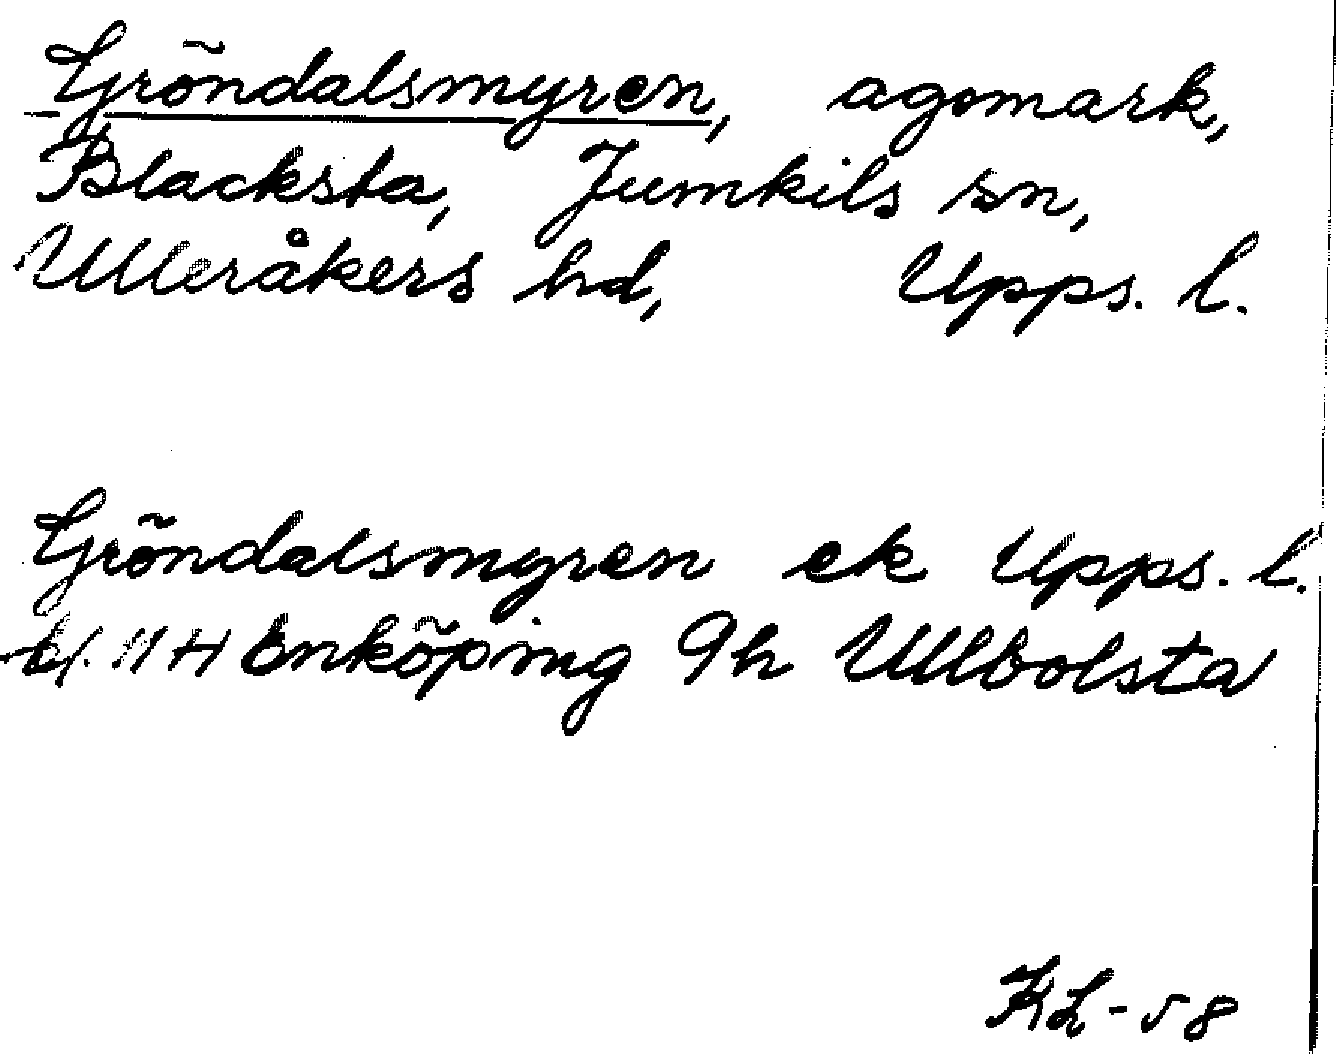 Gröndalsmyren, ägomark,
Blacksta, Jumkils sn,
Ulleråkers hd, Upps. l.
Gröndalsmyren ek Upps. l.
bl. 11 H Enköping 9h Ullbolsta
KL-58